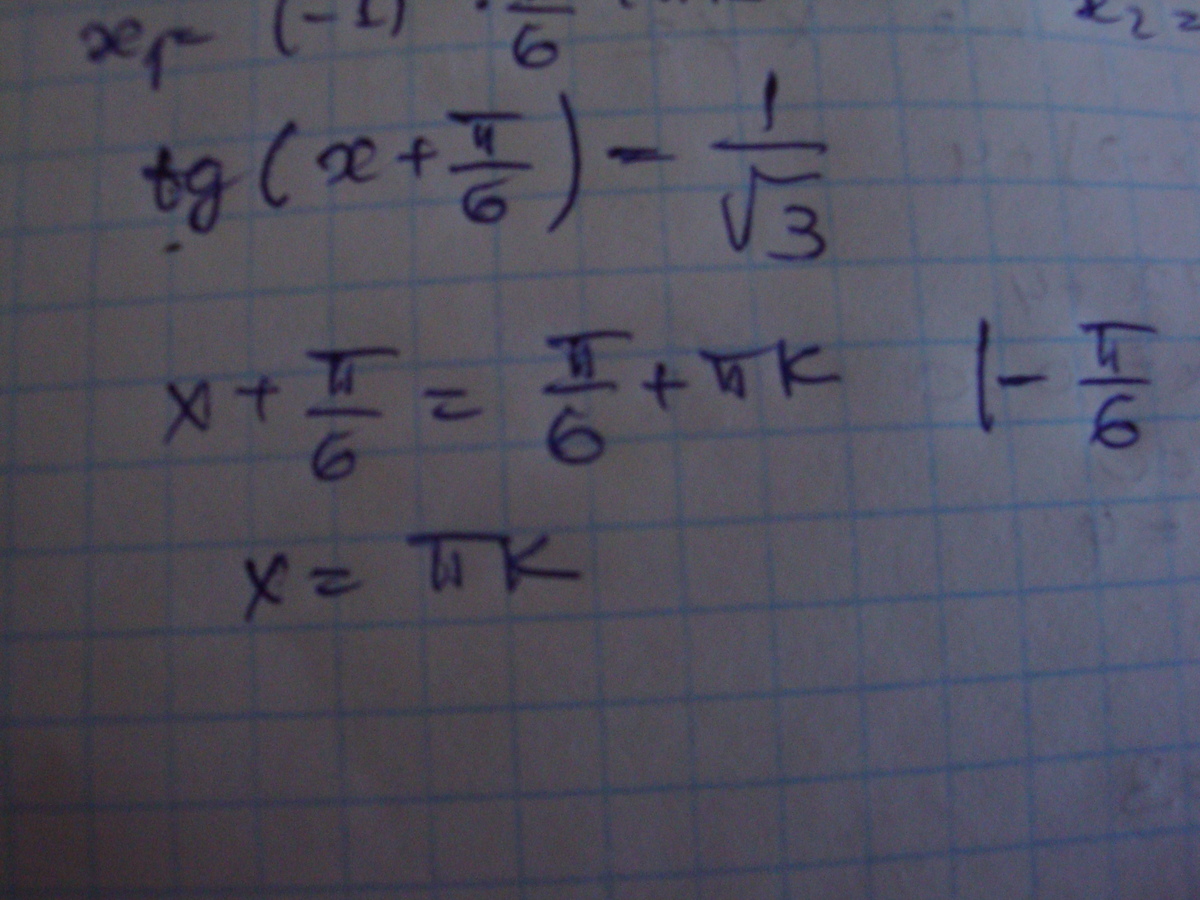 x₁= (-1) · π/6 x₂=
tg(x + π/6) - 1/√3
x + π/6 = π/6 + πk |- π/6
x = πk